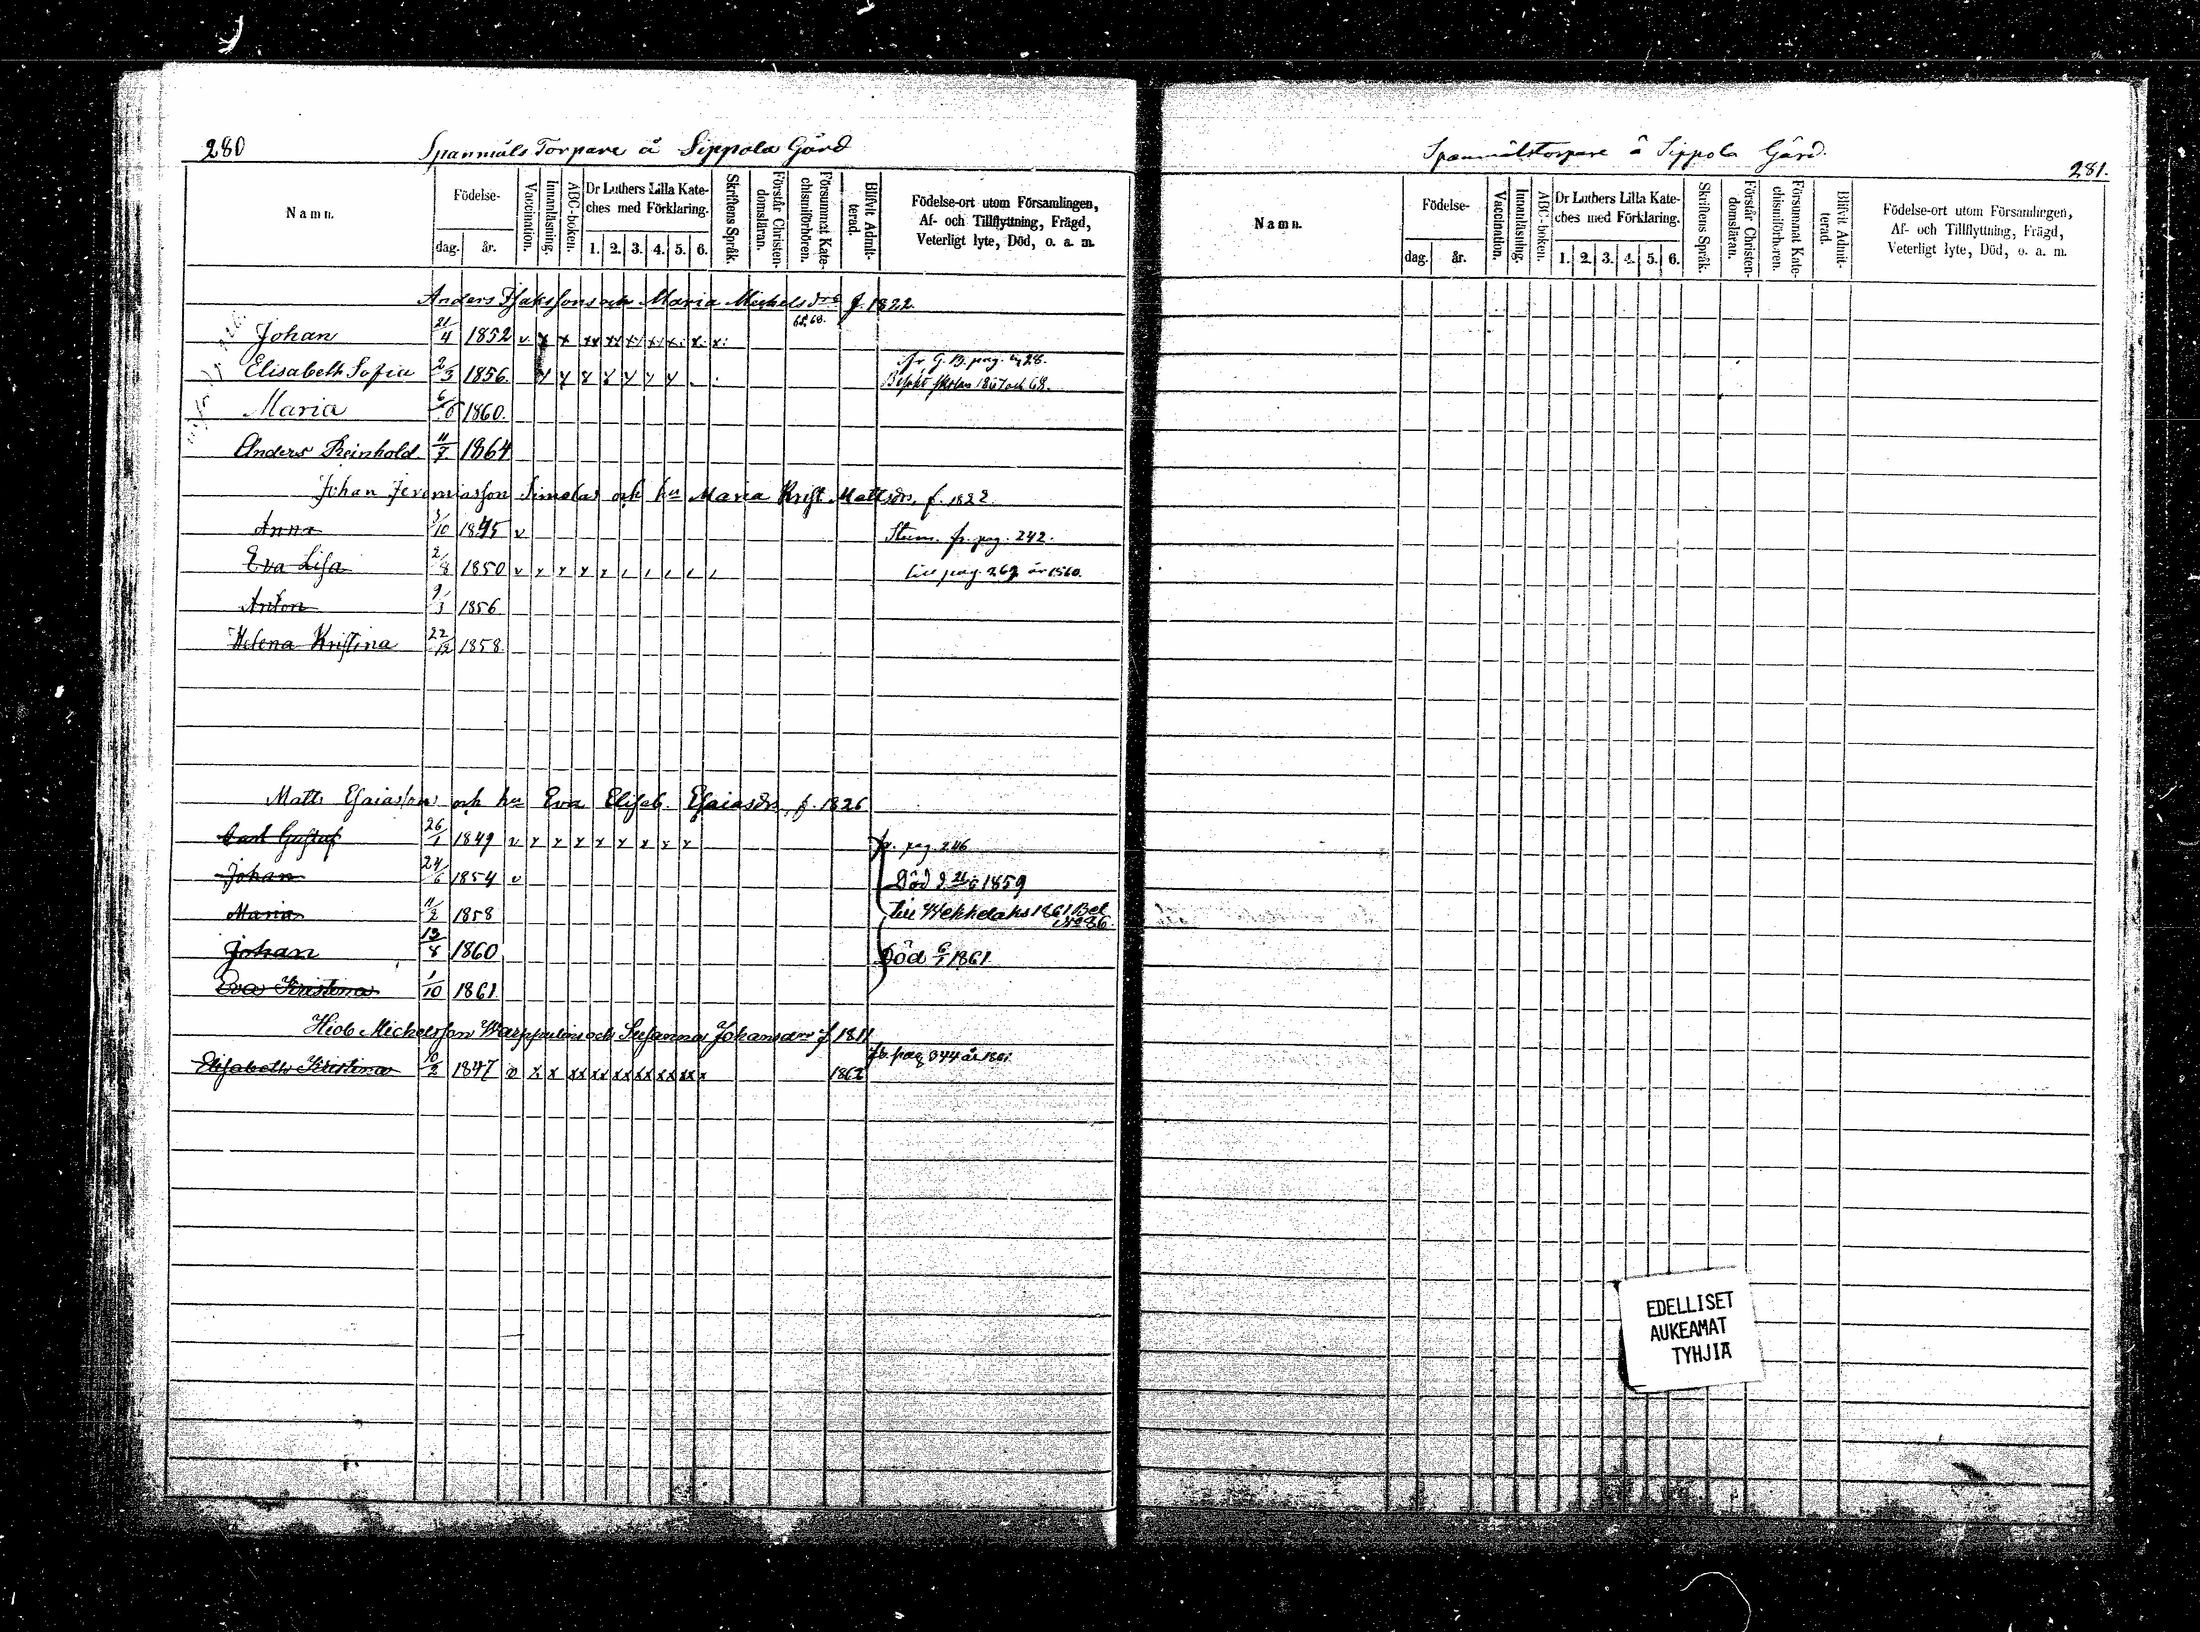 280
Spanmåls Torpare å Sippola Gård
Namn.
Födelse-
dag.
år.
Vaccination.
Innanläsning.
ABC-boken.
Dr Luthers Lilla Kate-
ches med Förklaring.
1. 2. 3. 4. 5. 6.
Skriftens Språk.
Förstår Christen-
domsläran.
Försummat Kate-
chismiförhören.
Blifvit Admit-
terad.
Födelse-ort utom Församlingen,
Af- och Tillflyttning, Frägd,
Veterligt lyte, Död, o. a. m.
Anders Isaksson och Maria Mickelsdr f. 1822
Johan 21/4 1852 v x x xx xx x x x. x. x. 68.
Elisabeth Sofia 2/3 1856. x x x x x x x fr G. B. pag. 28.
Besökt skolan 1867 och 68.
Maria 6/ 1860.
Anders Reinhold 11/7 1864
Johan Jeremiasson Simolas och hu Maria Krist. Mattsdr, f. 1822
Anna 3/10 1845 v Stum. fr. pag. 242.
Eva Lisa 2/8 1850 v x x x x till pag. 262 år 1860.
Anton 9/3 1856
Helena Kristina 22/12 1858
Matts Esaiasson och hu Eva Elisab. Esaiasdr, f. 1826
Carl Gustaf 26/1 1849 v x x x x x x x x fr. pag. 246
Johan 24/6 1854 v Död d 1859
Maria 11/2 1858 till Wekkelaks 1861 Bet
No 86.
Johan 13/8 1860 Död 6/1 1861
Eva Kristina 1/10 1861
Hiob Mickelsson och Susanna Johansdr f 1811
Elisabeth Kristina 10/2 1847 v x x xx xx xx xx xx xx x 1862 fr. pag 344 år 1861.
Spanmålstorpare å Sippola Gård.
281.
Namn.
Födelse-
dag.
år.
Vaccination.
Innanläsning.
ABC-boken.
Dr Luthers Lilla Kate-
ches med Förklaring.
1. 2. 3. 4. 5. 6.
Skriftens Språk.
Förstår Christen-
domsläran.
Försummat Kate-
chismiförhören.
Blifvit Admit-
terad.
Födelse-ort utom Församlingen,
Af- och Tillflyttning, Frägd,
Veterligt lyte, Död, o. a. m.
EDELLISET
AUKEAMAT
TYHJIÄ